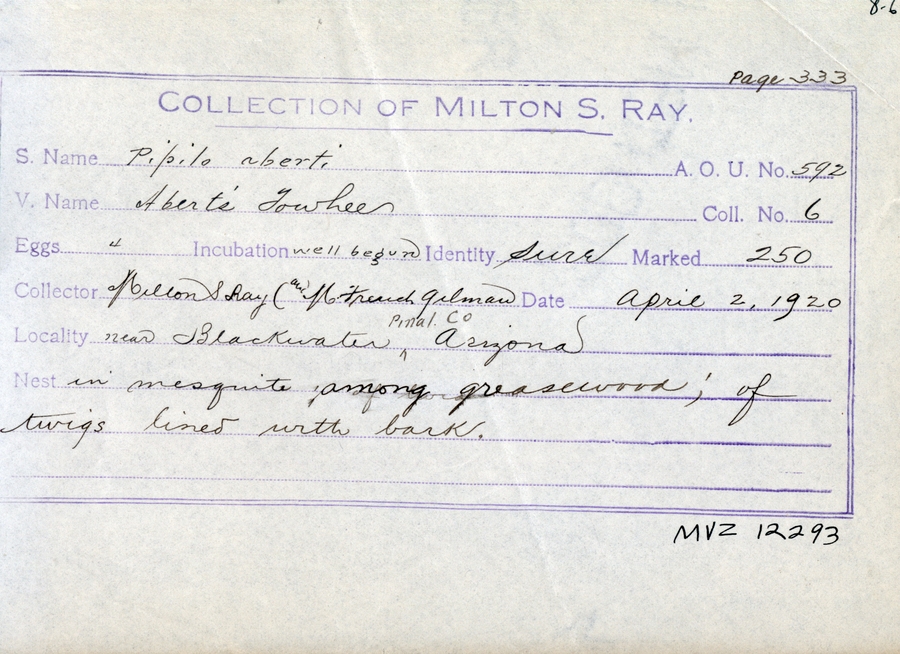 8-6
Page 333
COLLECTION OF MILTON S. RAY.
S. Name Pipilo aberti A. O. U. No. 592
V. Name Abert's Towhee Coll. No. 6
Eggs 4 Incubation well begun Identity Sure Marked 250
Collector Milton S Ray ( M. French Gilman Date April 2, 1920
Pinal Co
Locality near Blackwater, ^ Arizona
Nest in mesquite among greasewood; of
twigs lined with bark.
MVZ 12293